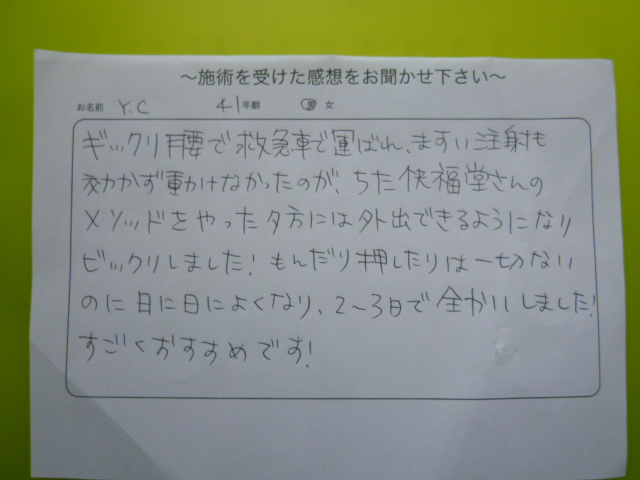 ～施術を受けた感想をお聞かせ下さい～
お名前 Y.C 41年齢 男 女
ギックリ腰で救急車で運ばれ、ますい注射も
効かず動けなかったのが、ちた快福堂さんの
メソッドをやった夕方には外出できるようになり
ビックリしました！もんだり押したりは一切ない
のに日に日によくなり、2～3日で全かいしました！
すごくおすすめです！